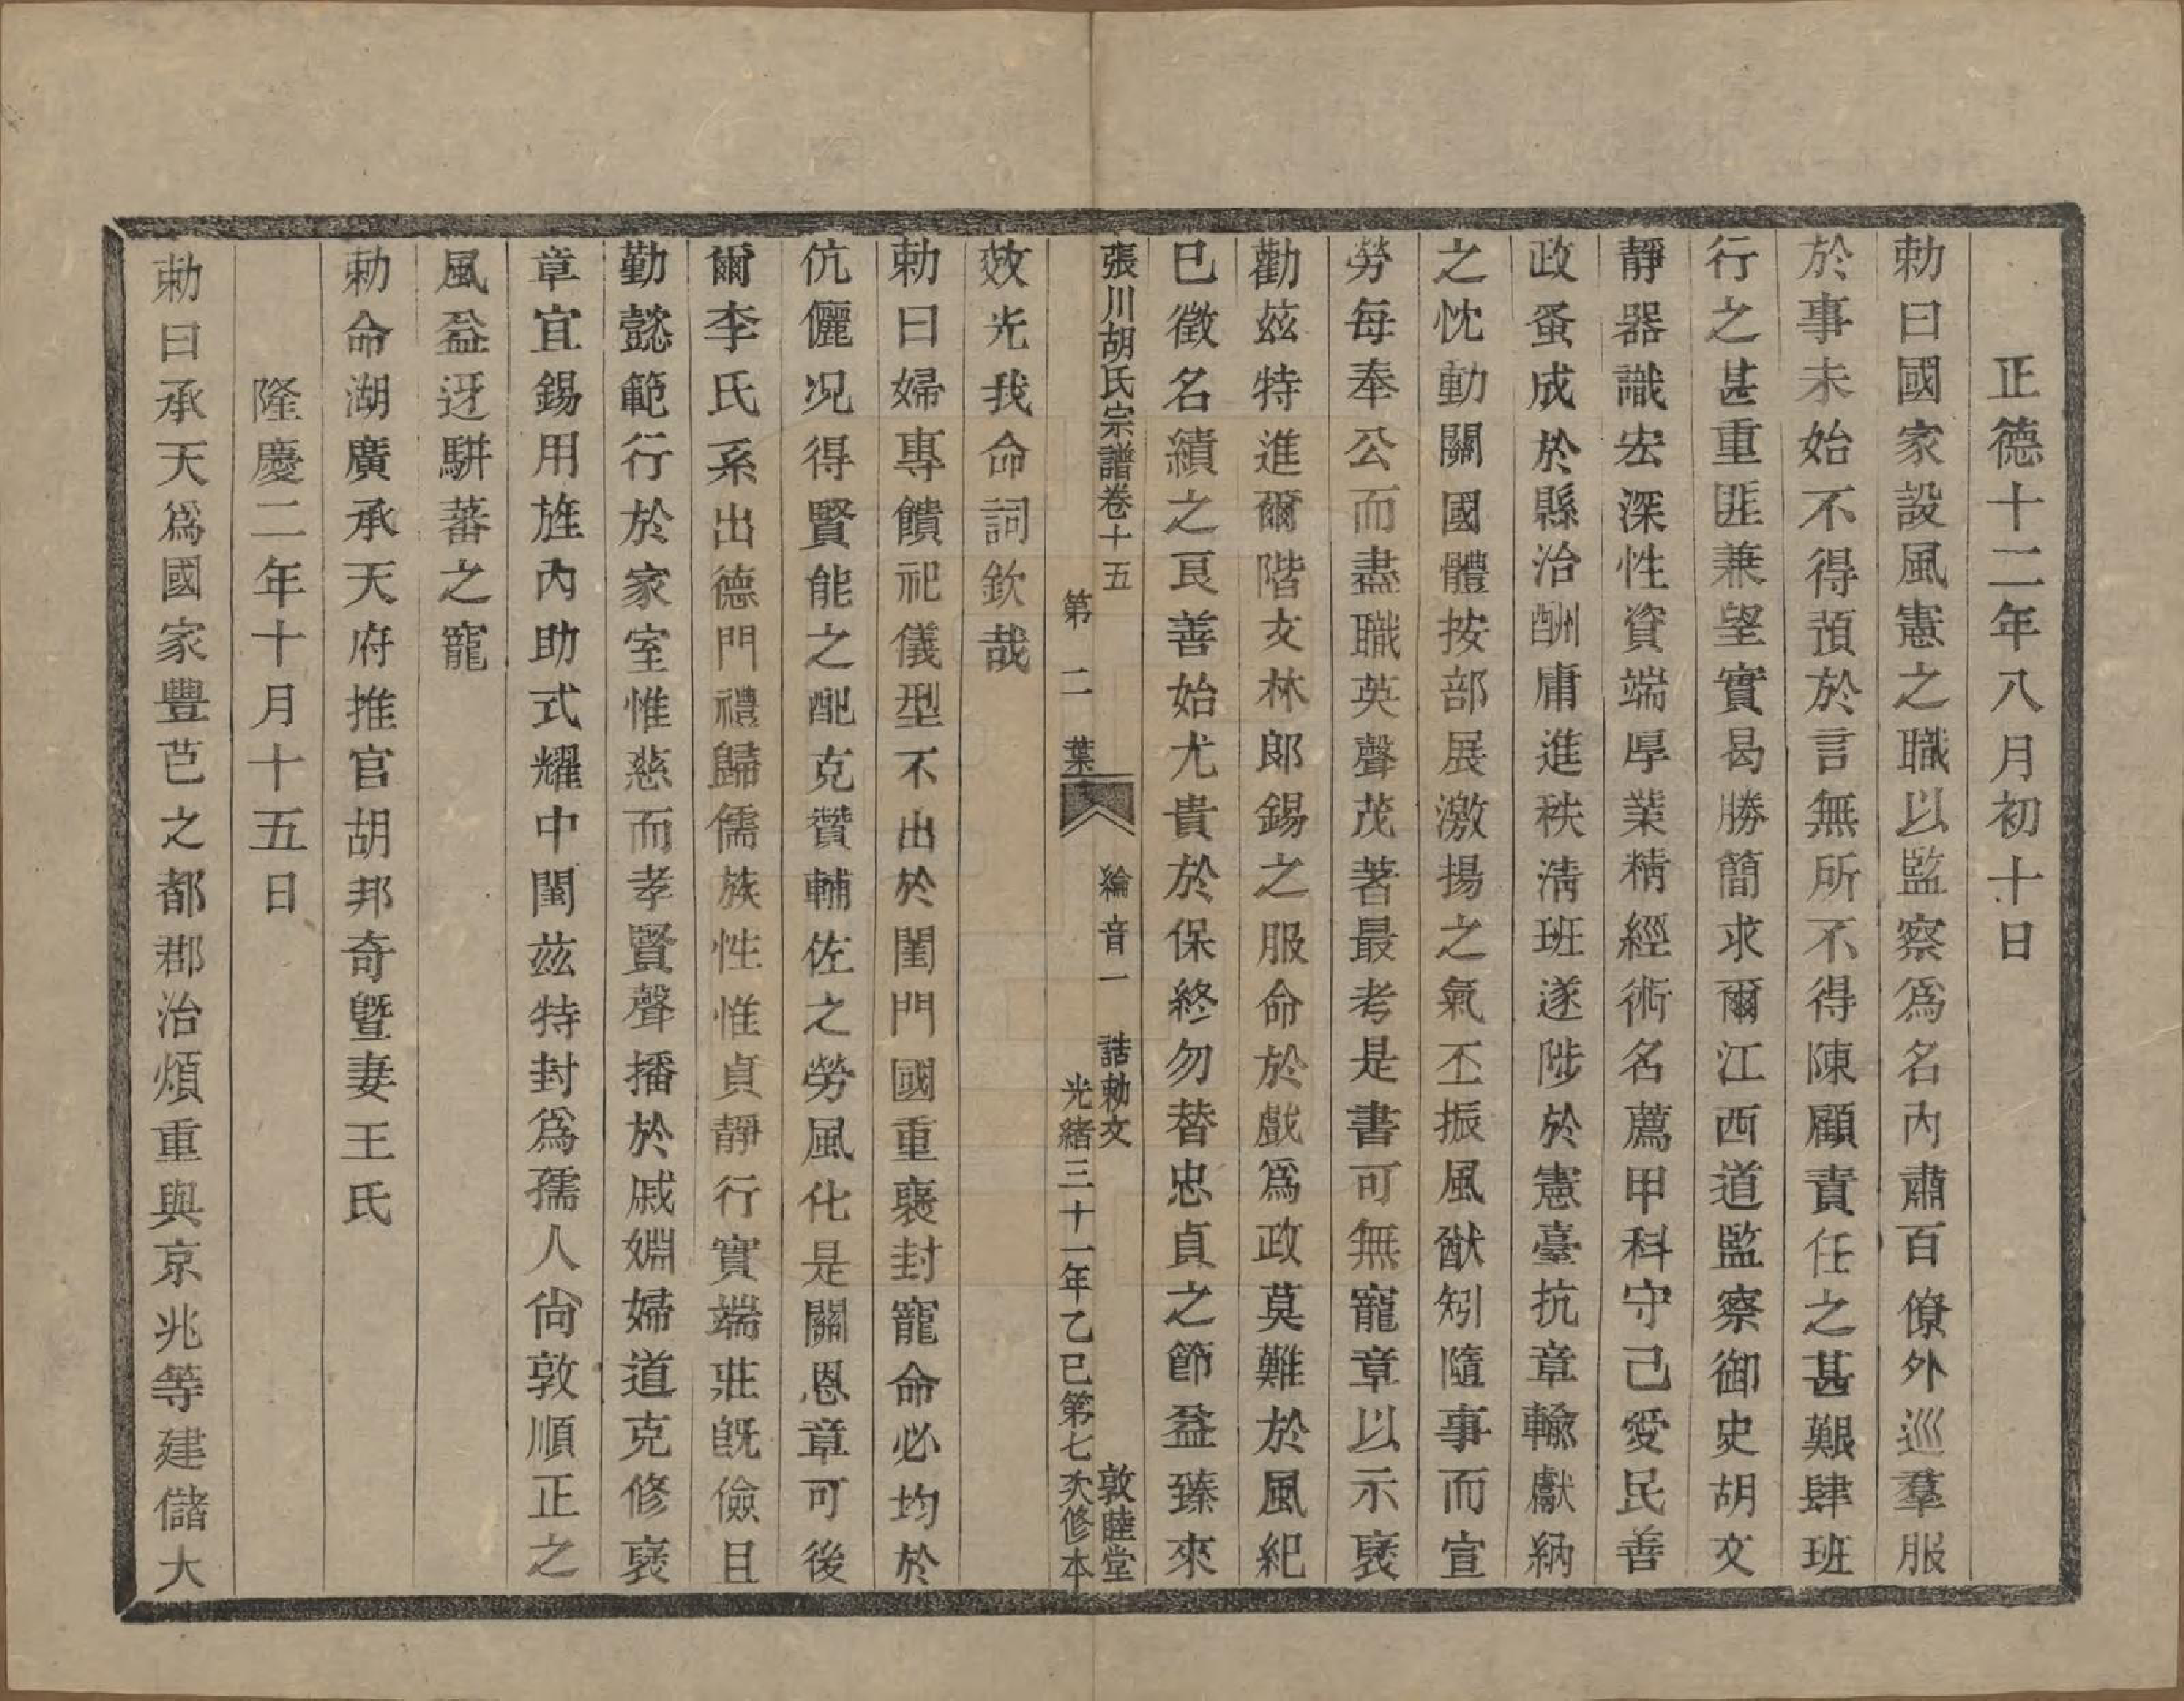 正德十二年八月初十日
勅曰國家設風憲之職以監察爲名內肅百僚外巡羣服
於事未始不得預於言無所不得陳顧責任之甚艱肆班
行之甚重匪兼望實曷勝簡求爾江西道監察御史胡文
靜器識宏深性資端厚業精經術名薦甲科守己愛民善
政蚤成於縣治酬庸進秩淸班遂陟於憲臺抗章輸獻納
之忱動關國體按部展激揚之氣丕振風猷矧隨事而宣
勞每奉公而盡職英聲茂著最考是書可無寵章以示褒
勸茲特進爾階文林郞錫之服命於戲爲政莫難於風紀
已徵名績之良善始尤貴於保終勿替忠貞之節益臻來
張川胡氏宗譜卷十五 綸音一 誥勅文 敦睦堂
第二葉 光緒三十一年乙巳第七次修本
效光我命詞欽哉
勅曰婦專饋祀儀型不出於閨門國重褒封寵命必均於
伉儷況得賢能之配克贊輔佐之勞風化是關恩章可後
爾李氏系出德門禮歸儒族性惟貞靜行實端莊旣儉且
勤懿範行於家室惟慈而孝賢聲播於戚婣婦道克修褒
章宜錫用旌內助式耀中閨茲特封爲孺人尙敦順正之
風益迓騈蕃之寵
勅命湖廣承天府推官胡邦奇曁妻王氏
隆慶二年十月十五日
勅曰承天爲國家豐芑之都郡治煩重與京兆等建儲大